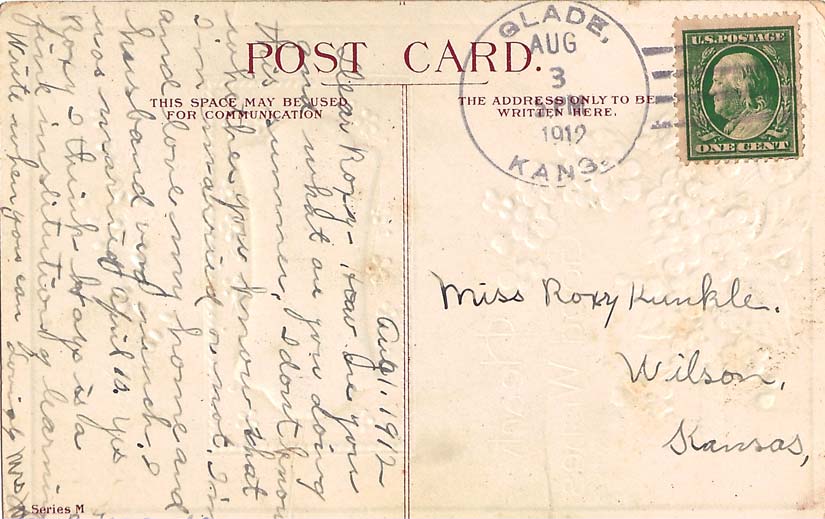 POST CARD.
THIS SPACE MAY BE USED
FOR COMMUNICATION
THE ADDRESS ONLY TO BE
WRITTEN HERE.
GLADE,
AUG
3
1912
KANS.
U.S. POSTAGE
ONE CENT
Aug 1, 1912
Dear Roxy- How are you
and what are you doing
this summer, I don't know
whether you know that
I'm married or not. I'm
and love my home and
husband very much. I
was married April 12. Yes
Roxy I think Hays is a
fine institution of learning
Write when you can Mrs
Miss Roxy Kunkle.
Wilson,
Kansas,
Series M